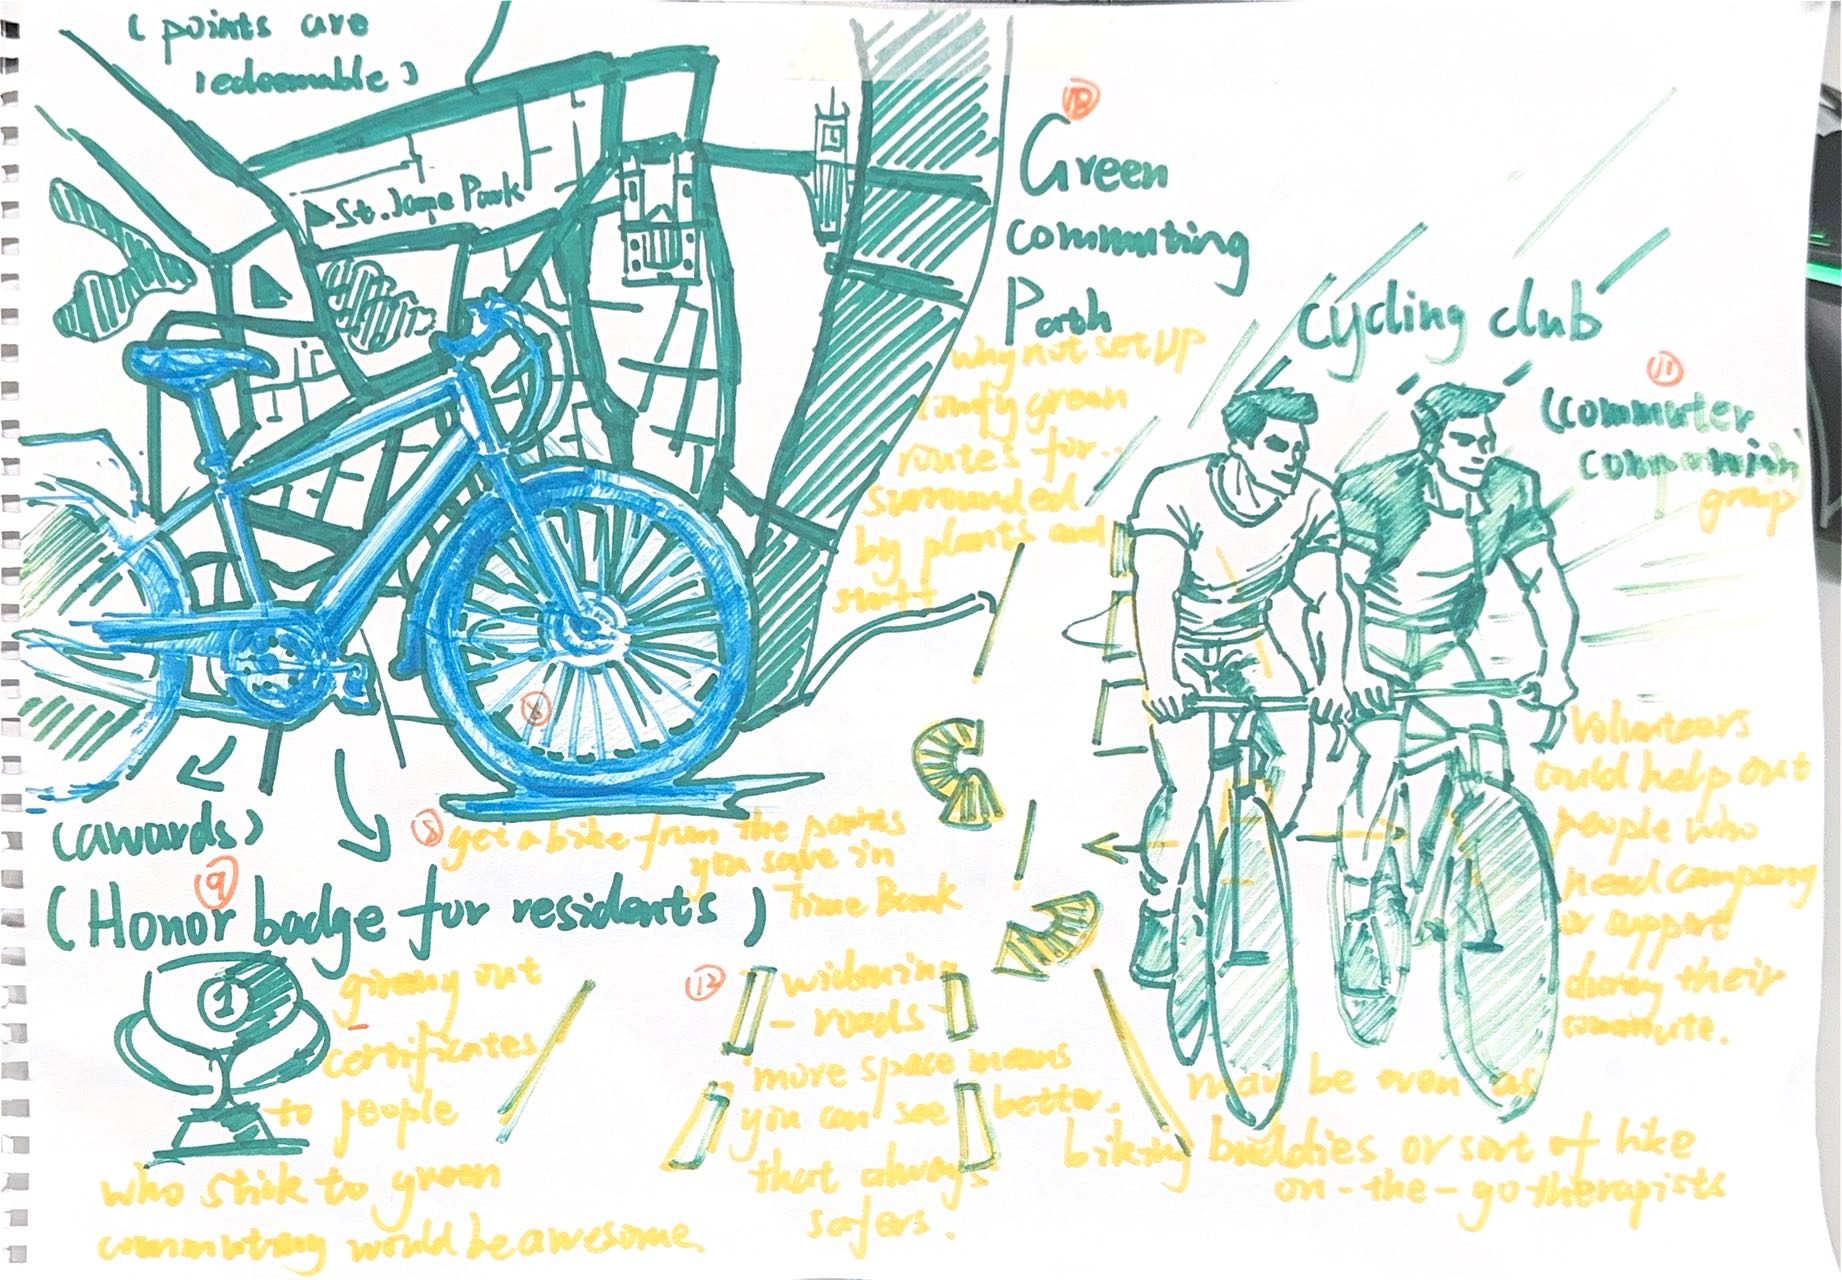 ( points are
redeemable)
St. Jame Park
18
Green
commuting
Path
why not set up
comfy green
routes for..
surrounded
by plants and
stuff
cycling club
11
(commuter
companion
group
volunteers
could help out
people who
need company
or support
during their
commute.
may be even as
biking buddies or sort of like
on-the-go therapists
8
(awards)
8 get a bike from the points
you save in
Time Bank
9
(Honor badge for residents)
1
giving out
certificates
to people
who stick to green
commuting would be awesome.
12
widening
- roads -
more space means
you can see better.
that always
safers.